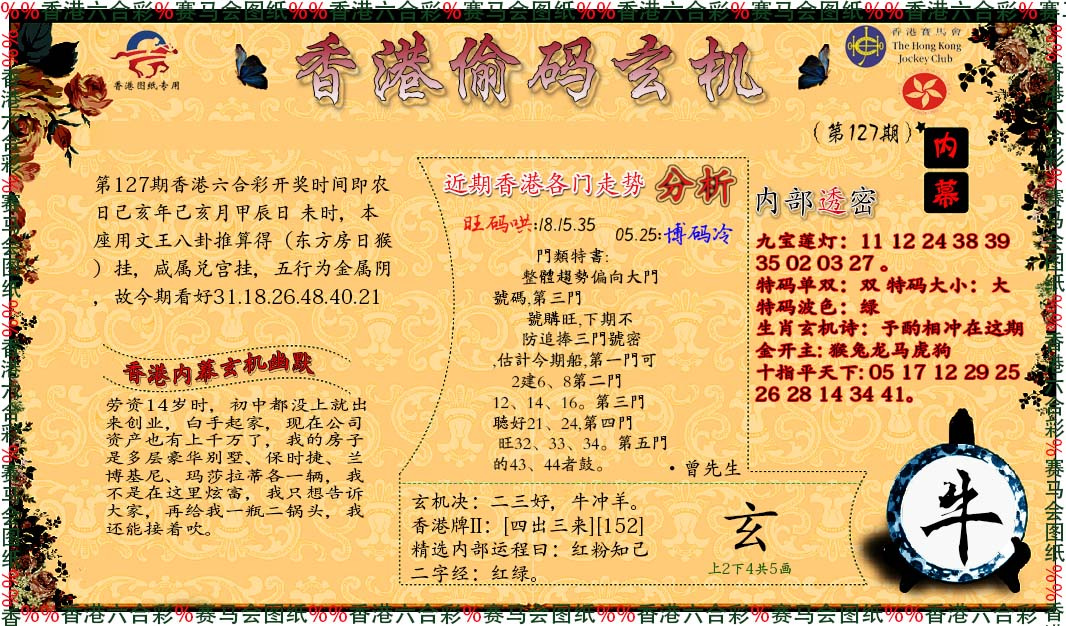 %%香港六合彩%赛马会图纸%%香港六合彩%赛马会图纸%%香港六合彩%赛马会图纸%%香港六合彩%赛马会图纸%%香港六合彩%赛马
香港图纸专用
香港偷码玄机
香港賽馬會
The Hong Kong
Jockey Club
(第127期)
内
幕
第127期香港六合彩开奖时间即农
日己亥年己亥月甲辰日 未时，本
座用文王八卦推算得（东方房日猴
）挂，咸属兑宫挂，五行为金属阴
，故今期看好31.18.26.48.40.21
香港内幕玄机幽默
劳资14岁时，初中都没上就出
来创业，白手起家，现在公司
资产也有上千万了，我的房子
是多层豪华别墅、保时捷、兰
博基尼、玛莎拉蒂各一辆，我
不是在这里炫富，我只想告诉
大家，再给我一瓶二锅头，我
还能接着吹。
近期香港各门走势 分析
旺码哄:18.15.35
05.25:博码冷
門類特書:
整體趨勢偏向大門
號碼,第三門
號購旺,下期不
防追捧三門號密
,估計今期船,第一門可
2建6、8第二門
12、14、16。第三門
聽好21、24,第四門
旺32、33、34。第五門
的43、44者鼓。
·曾先生
玄机决：二三好，牛冲羊。
香港牌II：[四出三来][152]
精选内部运程日：红粉知己
二字经：红绿。
玄
上2下4共5画
内部透密
九宝莲灯：11 12 24 38 39
35 02 03 27 。
特码单双：双 特码大小：大
特码波色：绿
生肖玄机诗：予酌相冲在这期
金开主: 猴兔龙马虎狗
十指平天下: 05 17 12 29 25
26 28 14 34 41。
牛